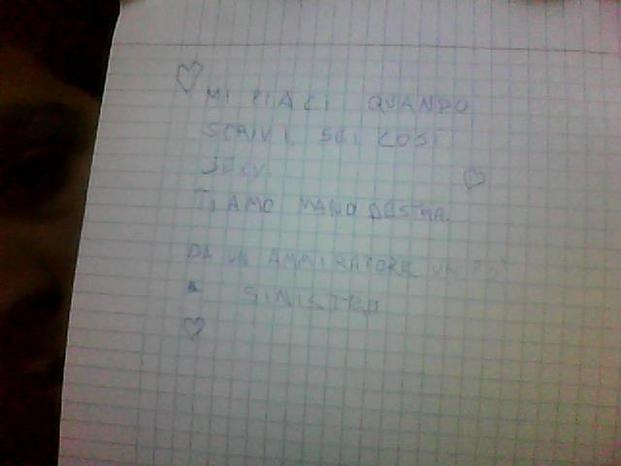 MI PIACI QUANDO
SCRIVI, SEI COSI
SEXY.
TI AMO MANO DESTRA.
DA UN AMMIRATORE UN PO'
SINISTRO